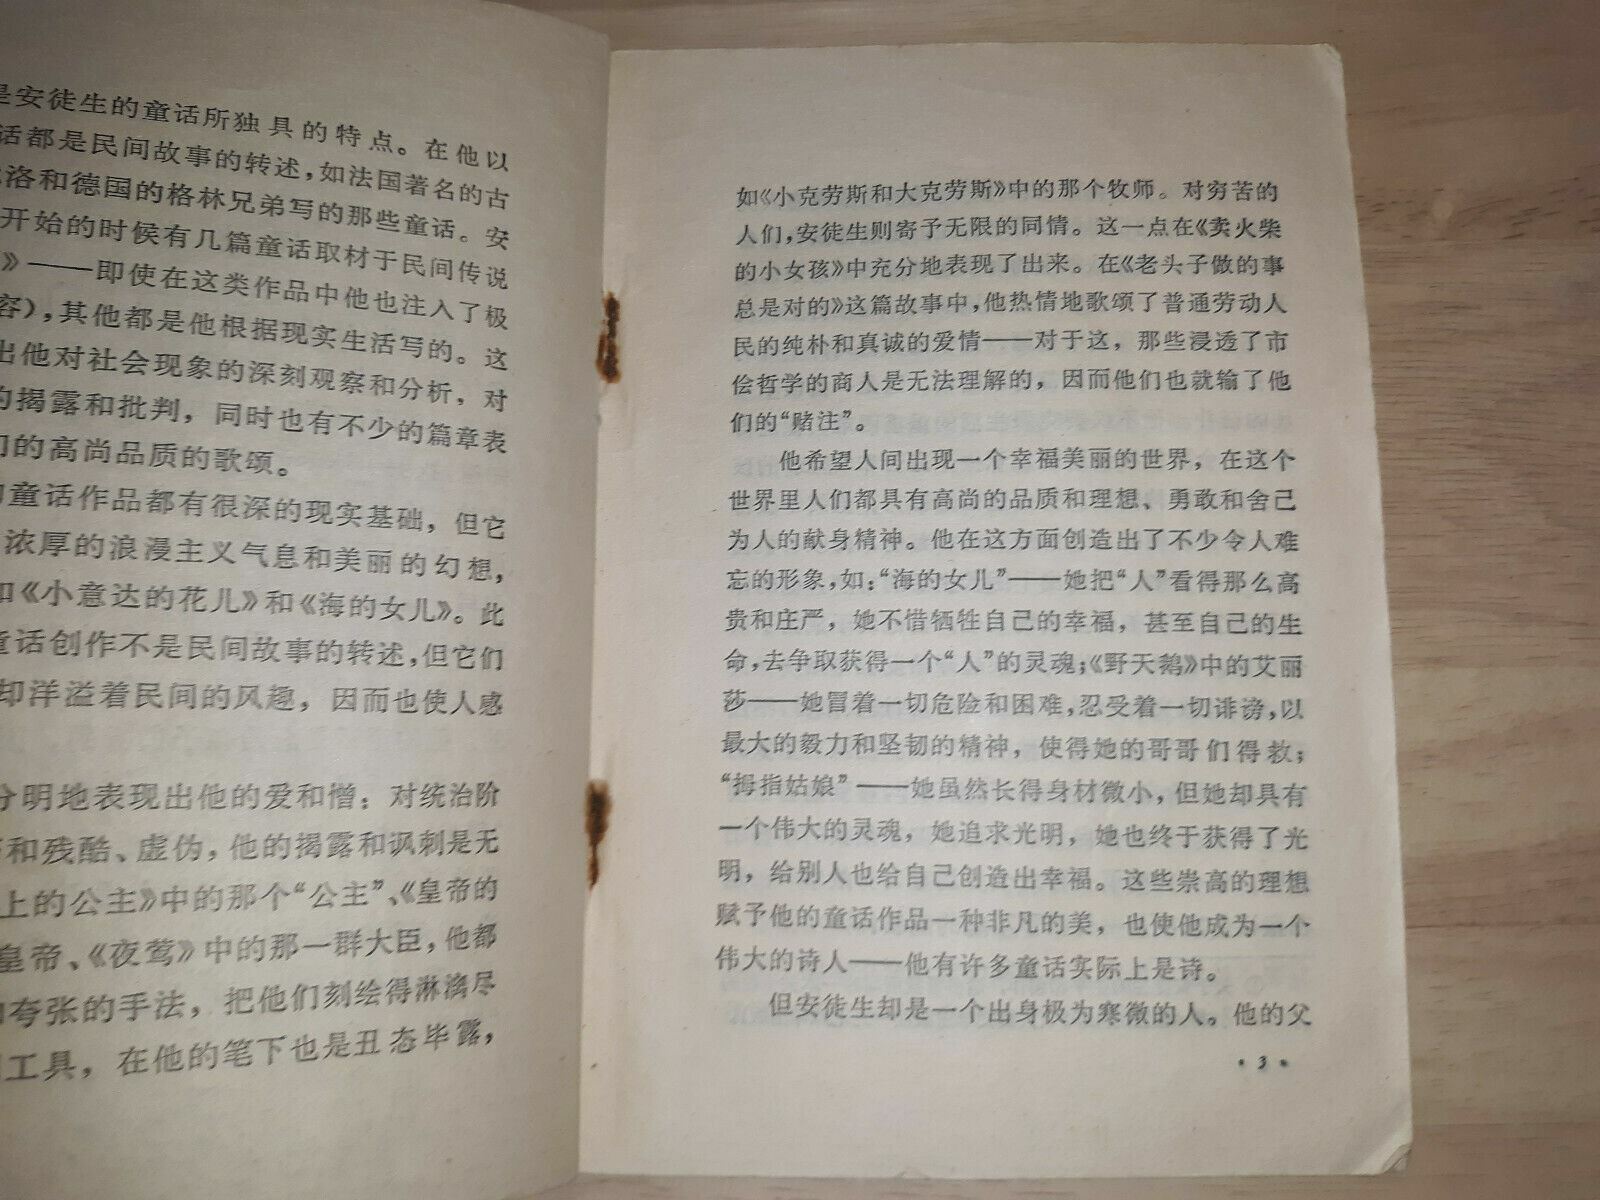 是安徒生的童话所独具的特点。在他以
话都是民间故事的转述，如法国著名的古
洛和德国的格林兄弟写的那些童话。安
开始的时候有几篇童话取材于民间传说
》——即使在这类作品中他也注入了极
容），其他都是他根据现实生活写的。这
出他对社会现象的深刻观察和分析，对
的揭露和批判，同时也有不少的篇章表
们的高尚品质的歌颂。
的童话作品都有很深的现实基础，但它
浓厚的浪漫主义气息和美丽的幻想，
如《小意达的花儿》和《海的女儿》。此
童话创作不是民间故事的转述，但它们
却洋溢着民间的风趣，因而也使人感
分明地表现出他的爱和憎：对统治阶
和残酷、虚伪，他的揭露和讽刺是无
上的公主》中的那个“公主”、《皇帝的
皇帝、《夜莺》中的那一群大臣，他都
和夸张的手法，把他们刻绘得淋漓尽
工具，在他的笔下也是丑态毕露，
如《小克劳斯和大克劳斯》中的那个牧师。对穷苦的
人们，安徒生则寄予无限的同情。这一点在《卖火柴
的小女孩》中充分地表现了出来。在《老头子做的事
总是对的》这篇故事中，他热情地歌颂了普通劳动人
民的纯朴和真诚的爱情——对于这，那些浸透了市
侩哲学的商人是无法理解的，因而他们也就输了他
们的“赌注”。
他希望人间出现一个幸福美丽的世界，在这个
世界里人们都具有高尚的品质和理想、勇敢和舍己
为人的献身精神。他在这方面创造出了不少令人难
忘的形象，如：“海的女儿”——她把“人”看得那么高
贵和庄严，她不惜牺牲自己的幸福，甚至自己的生
命，去争取获得一个“人”的灵魂；《野天鹅》中的艾丽
莎——她冒着一切危险和困难，忍受着一切诽谤，以
最大的毅力和坚韧的精神，使得她的哥哥们得救；
“拇指姑娘”——她虽然长得身材微小，但她却具有
一个伟大的灵魂，她追求光明，她也终于获得了光
明，给别人也给自己创造出幸福。这些崇高的理想
赋予他的童话作品一种非凡的美，也使他成为一个
伟大的诗人——他有许多童话实际上是诗。
但安徒生却是一个出身极为寒微的人。他的父
· 3 ·